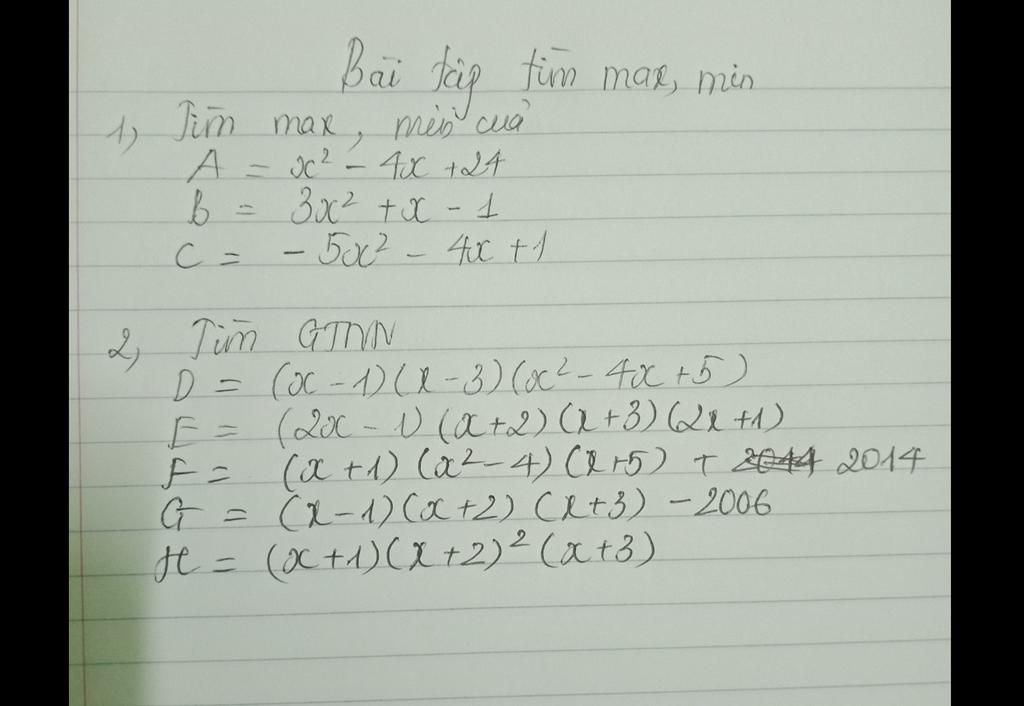 Bài tập tìm max, min
1, Tìm max, min của
A = x² - 4x + 24
B = 3x² + x - 1
C = - 5x² - 4x + 1
2, Tìm GTNN
D = (x - 1)(x - 3)(x² - 4x + 5)
E = (2x - 1)(x + 2)(x + 3)(2x + 1)
F = (x + 1)(x² - 4)(x + 5) + 2014
G = (x - 1)(x + 2)(x + 3) - 2006
H = (x + 1)(x + 2)² (x + 3)